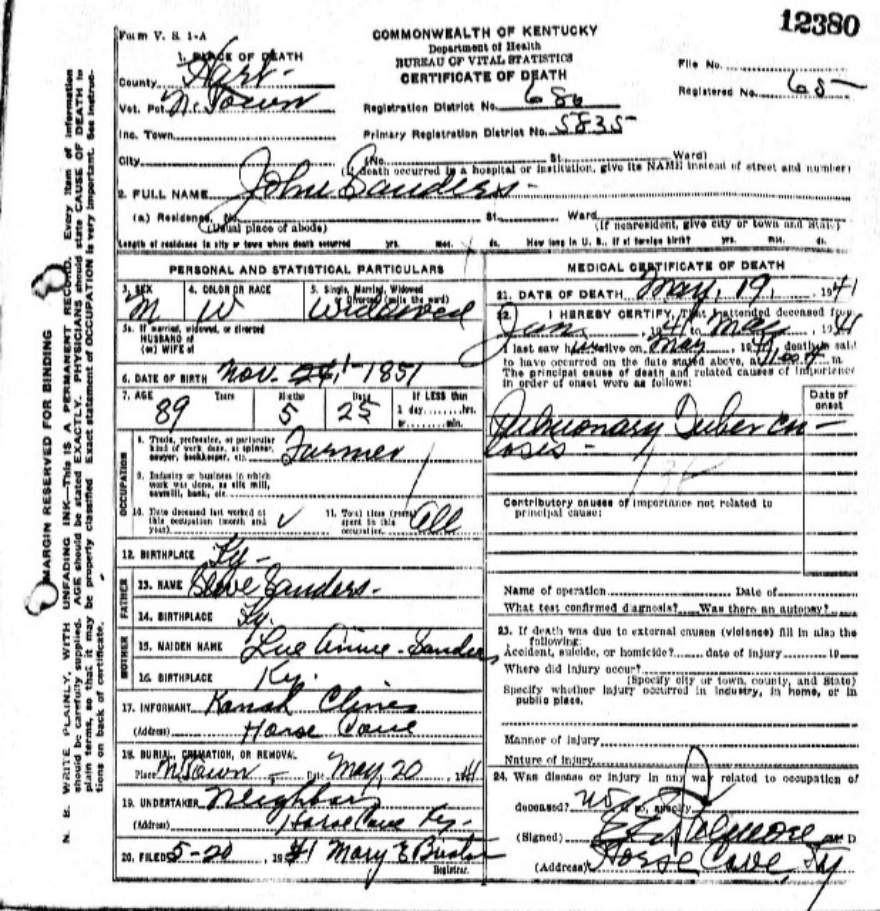 12380
Form V. S. 1-A
COMMONWEALTH OF KENTUCKY
Department of Health
BUREAU OF VITAL STATISTICS
CERTIFICATE OF DEATH
1. PLACE OF DEATH
File No.
County Hart-
Registered No. 65-
Vot. Pct. Town
Registration District No. 686
Inc. Town
Primary Registration District No. 5835-
City (No. St. Ward)
(If death occurred in a hospital or institution, give its NAME instead of street and number)
2. FULL NAME John Sanders-
(a) Residence. No. St. Ward
(Usual place of abode) (If nonresident, give city or town and State)
Length of residence in city or town where death occurred yrs. mos. ds. How long in U. S., if of foreign birth? yrs. mos. ds.
PERSONAL AND STATISTICAL PARTICULARS
3. SEX M
4. COLOR OR RACE W
5. Single, Married, Widowed or Divorced (write the word) Widowed
5a. If married, widowed, or divorced
HUSBAND of
(or) WIFE of
6. DATE OF BIRTH Nov. 1851
7. AGE 89 Years 5 Months 25 Days
If LESS than
1 day hrs.
or min.
OCCUPATION
8. Trade, profession, or particular
kind of work done, as spinner,
sawyer, bookkeeper, etc. Farmer
9. Industry or business in which
work was done, as silk mill,
sawmill, bank, etc.
10. Date deceased last worked at
this occupation (month and
year)
11. Total time (years)
spent in this
occupation All
12. BIRTHPLACE Ky-
FATHER
13. NAME Sanders-
14. BIRTHPLACE Ky.
MOTHER
15. MAIDEN NAME Lue Annie-Sanders
16. BIRTHPLACE Ky.
17. INFORMANT Clines
(Address) Horse Cave
18. BURIAL, CREMATION, OR REMOVAL
Place Date May, 20, 1941
19. UNDERTAKER Neighbors
(Address) Horse Cave Ky-
20. FILED 5-20, 1941 Mary E
Registrar.
MEDICAL CERTIFICATE OF DEATH
21. DATE OF DEATH May, 19, 1941
22. I HEREBY CERTIFY, That I attended deceased from
Jan, 1941 to May, 1941
I last saw him alive on May, 1941, death is said
to have occurred on the date stated above, at m.
The principal cause of death and related causes of importance
in order of onset were as follows:
Date of
onset
Pulmonary Tubercu-
losis-
Contributory causes of importance not related to
principal cause:
Name of operation Date of
What test confirmed diagnosis? Was there an autopsy?
23. If death was due to external causes (violence) fill in also the
following:
Accident, suicide, or homicide? date of injury 19
Where did injury occur?
(Specify city or town, county, and State)
Specify whether injury occurred in industry, in home, or in
public place.
Manner of injury
Nature of injury
24. Was disease or injury in any way related to occupation of
deceased? no If so, specify
(Signed) M D
(Address) Horse Cave, Ky
MARGIN RESERVED FOR BINDING
N. B. WRITE PLAINLY, WITH UNFADING INK—This is A PERMANENT RECORD. Every item of information
should be carefully supplied. AGE should be stated EXACTLY. PHYSICIANS should state CAUSE OF DEATH in
plain terms, so that it may be properly classified. Exact statement of OCCUPATION is very important. See instruc-
tions on back of certificate.